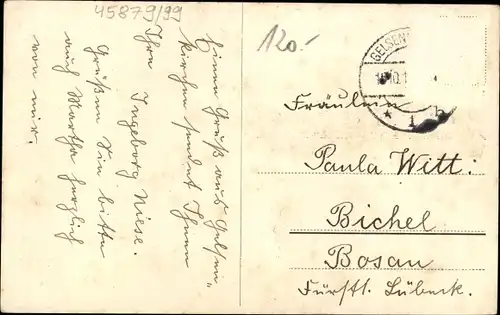 45879/99
Einen Gruß aus Gelsen„
kirchen sendet Ihnen
Ihre Ingeborg Niese.
Grüßen Sie bitte
auch Martha herzlich
von mir.
120.-
GELSEN
1 b
Fräulein
Paula Witt:
Bichel
Bosau
Fürstt. Lübeck.